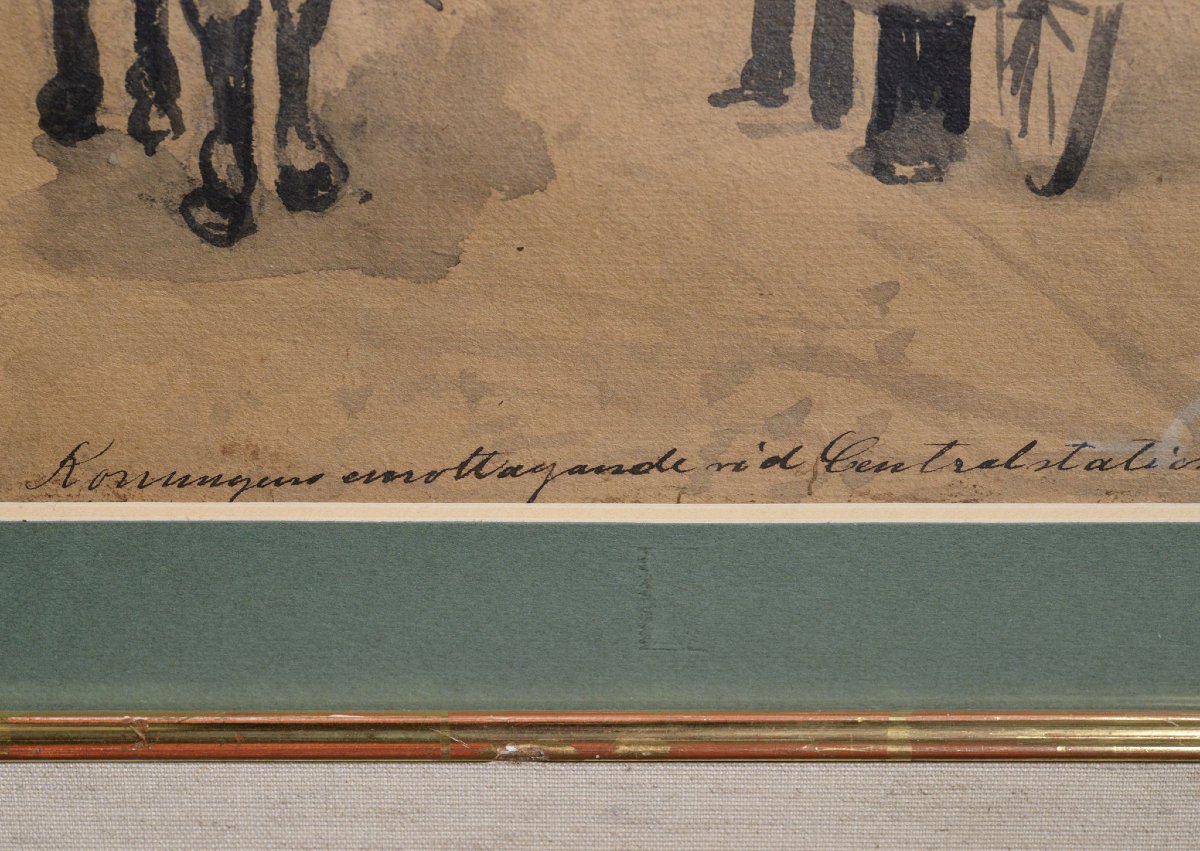 Konungens emottagande vid Centralstatio